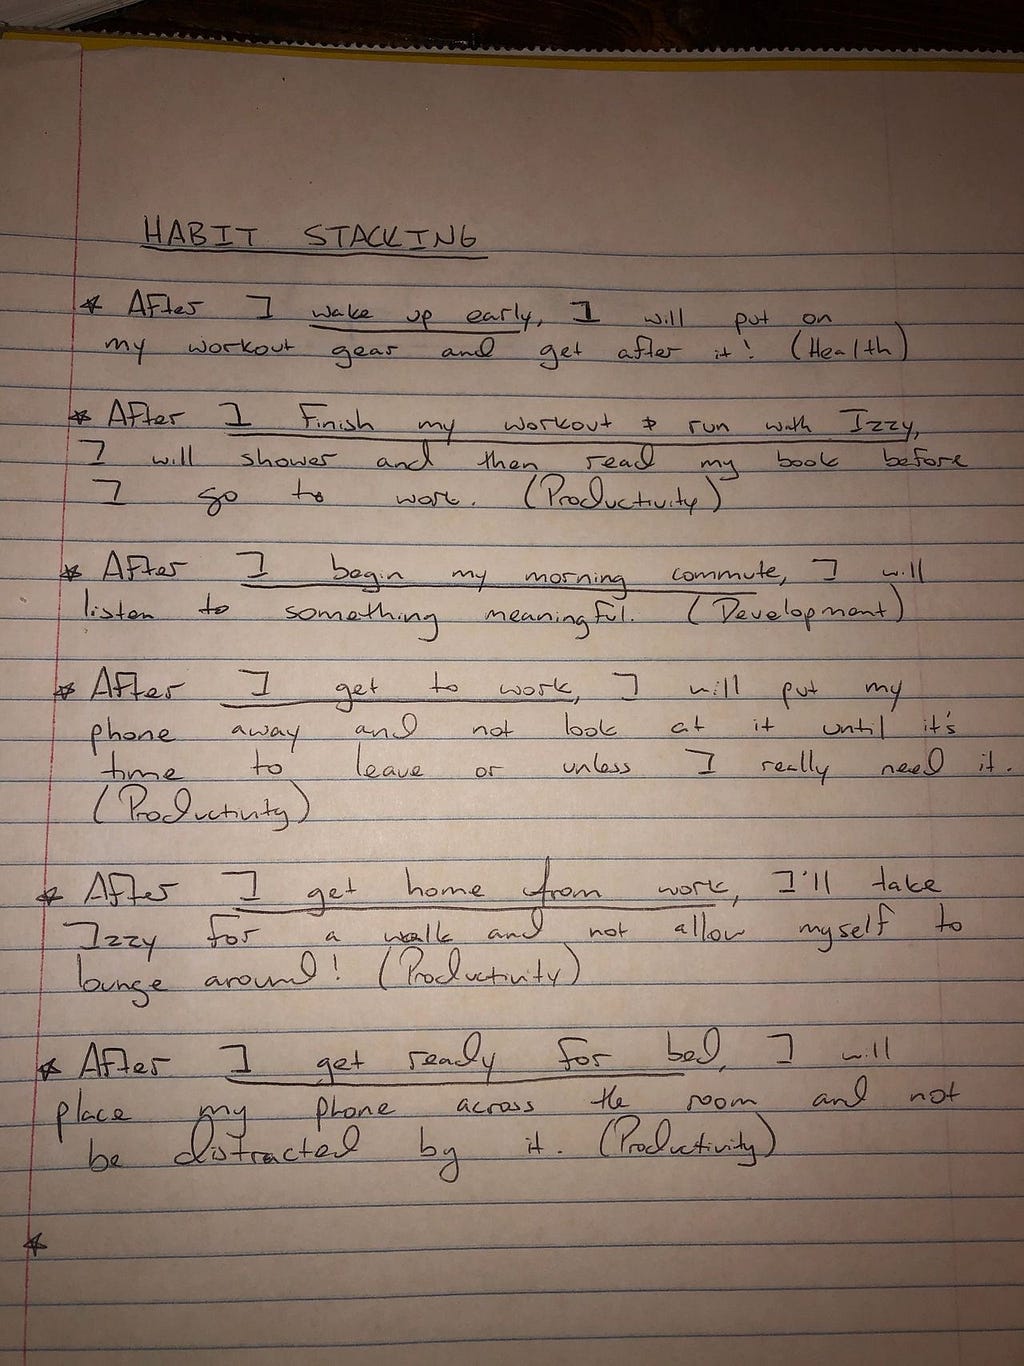 HABIT STACKING
* After I wake up early, I will put on
my workout gear and get after it! (Health)
* After I finish my workout & run with Izzy,
I will shower and then read my book before
I go to work. (Productivity)
* After I begin my morning commute, I will
listen to something meaningful. (Development)
* After I get to work, I will put my
phone away and not look at it until it's
time to leave or unless I really need it.
(Productivity)
* After I get home from work, I'll take
Izzy for a walk and not allow myself to
lounge around! (Productivity)
* After I get ready for bed, I will
place my phone across the room and not
be distracted by it. (Productivity)
*